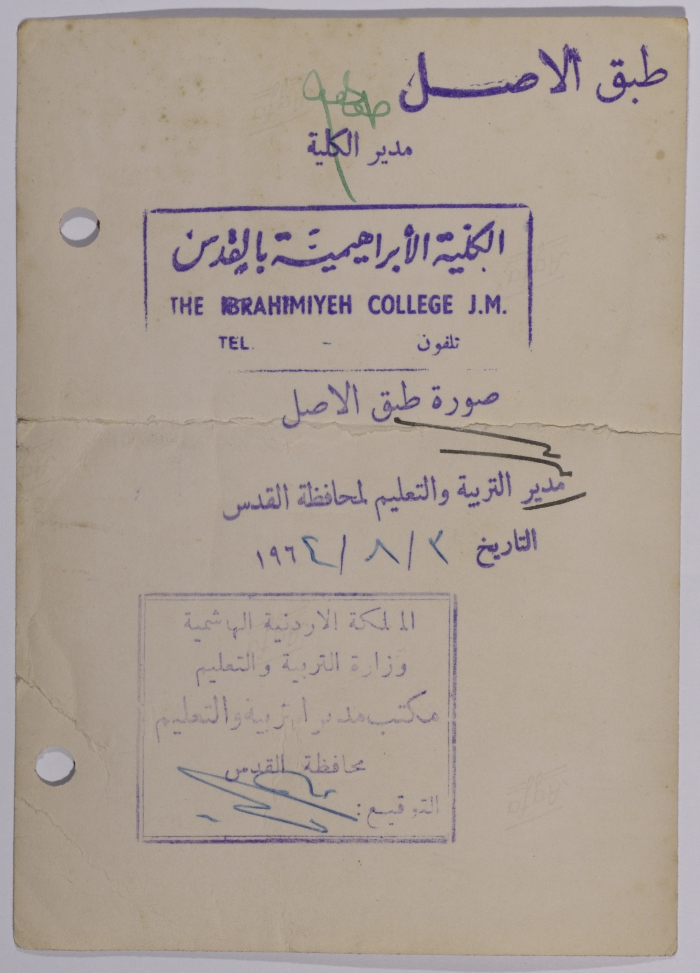 طبق الاصل
مدير الكلية
الكلية الأبراهيمية بالقدس
THE IBRAHIMIYEH COLLEGE J.M.
TEL. - تلفون
صورة طبق الاصل
مدير التربية والتعليم لمحافظة القدس
التاريخ ٢/ ٨ / ١٩٦٤
المملكة الاردنية الهاشمية
وزارة التربية والتعليم
مكتب مدير التربية والتعليم
محافظة القدس
التوقيع: